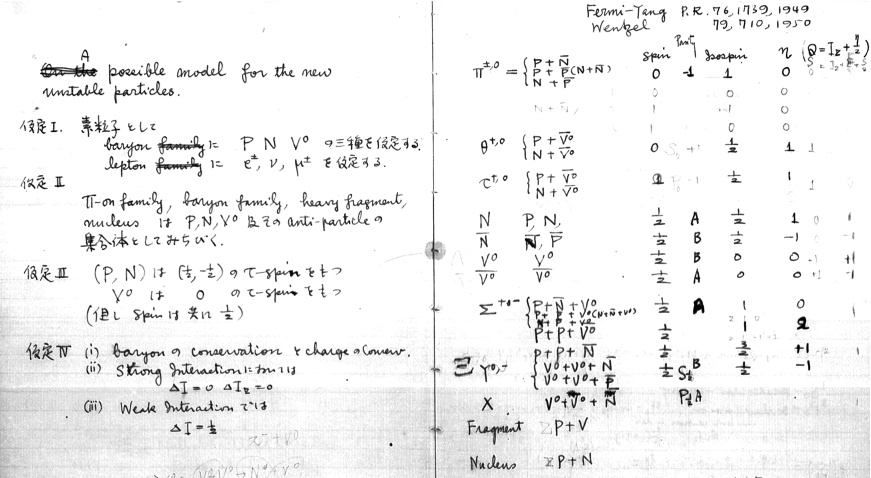 A
possible model for the new
unstable particles.
仮定 I. 素粒子として
baryon family に P N V⁰ の三種を仮定する.
lepton family に e±, ν, μ± を仮定する.
仮定 II
Π-on family, baryon family, heavy fragment,
nucleus は P, N, V⁰ 及その anti-particle の
集合体としてみちびく.
仮定 III (P, N) は (½, -½) の τ-spin をもつ
V⁰ は 0 の τ-spin をもつ
(但し spin は共に ½)
仮定 IV (i) baryon の conservation と charge の Conserv.
(ii) Strong Interaction に於ては
ΔI = 0 ΔI_z = 0
(iii) Weak Interaction では
ΔI = ½
Fermi-Yang P.R. 76, 1739, 1949
Wentzel 79, 710, 1950
Spin Parity Isospin η (Q = I_z + η/2)
Π±,0 = { P + N̄
P + P̄ (N + N̄) 0 -1 1 0
N + P̄
θ±,0 { P + V̄⁰ 0 ½ 1
N + V̄⁰
τ±,0 { P + V̄⁰ ½ 1
N + V̄⁰
N P, N, ½ A ½ 1
N̄ N̄, P̄ ½ B ½ -1
V⁰ V⁰ ½ B 0 0
V̄⁰ V̄⁰ ½ A 0 0
Σ+0- { P + N̄ + V⁰ ½ A 1 0
P + P̄ + V⁰ (N + N̄ + V⁰)
N + P̄ + V⁰
P + P + V̄⁰ ½ 1 2
P + P + N̄ ½ 3/2 +1
Ξ Y⁰,- { V⁰ + V⁰ + N̄ ½ B ½ -1
V⁰ + V⁰ + P̄ S½
X V⁰ + V⁰ + N̄ P½ A
Fragment ΣP + V
Nucleus ΣP + N